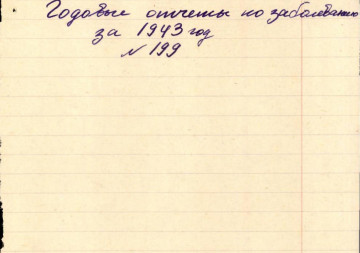 Годовые отчеты по заболеванию
за 1943 год
N 199